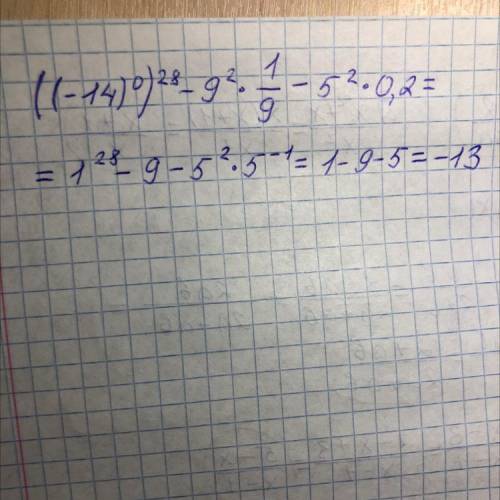 ((-14)⁰)²⁸ - 9² · 1/9 - 5² · 0,2 =
= 1²⁸ - 9 - 5² · 5⁻¹ = 1 - 9 - 5 = -13